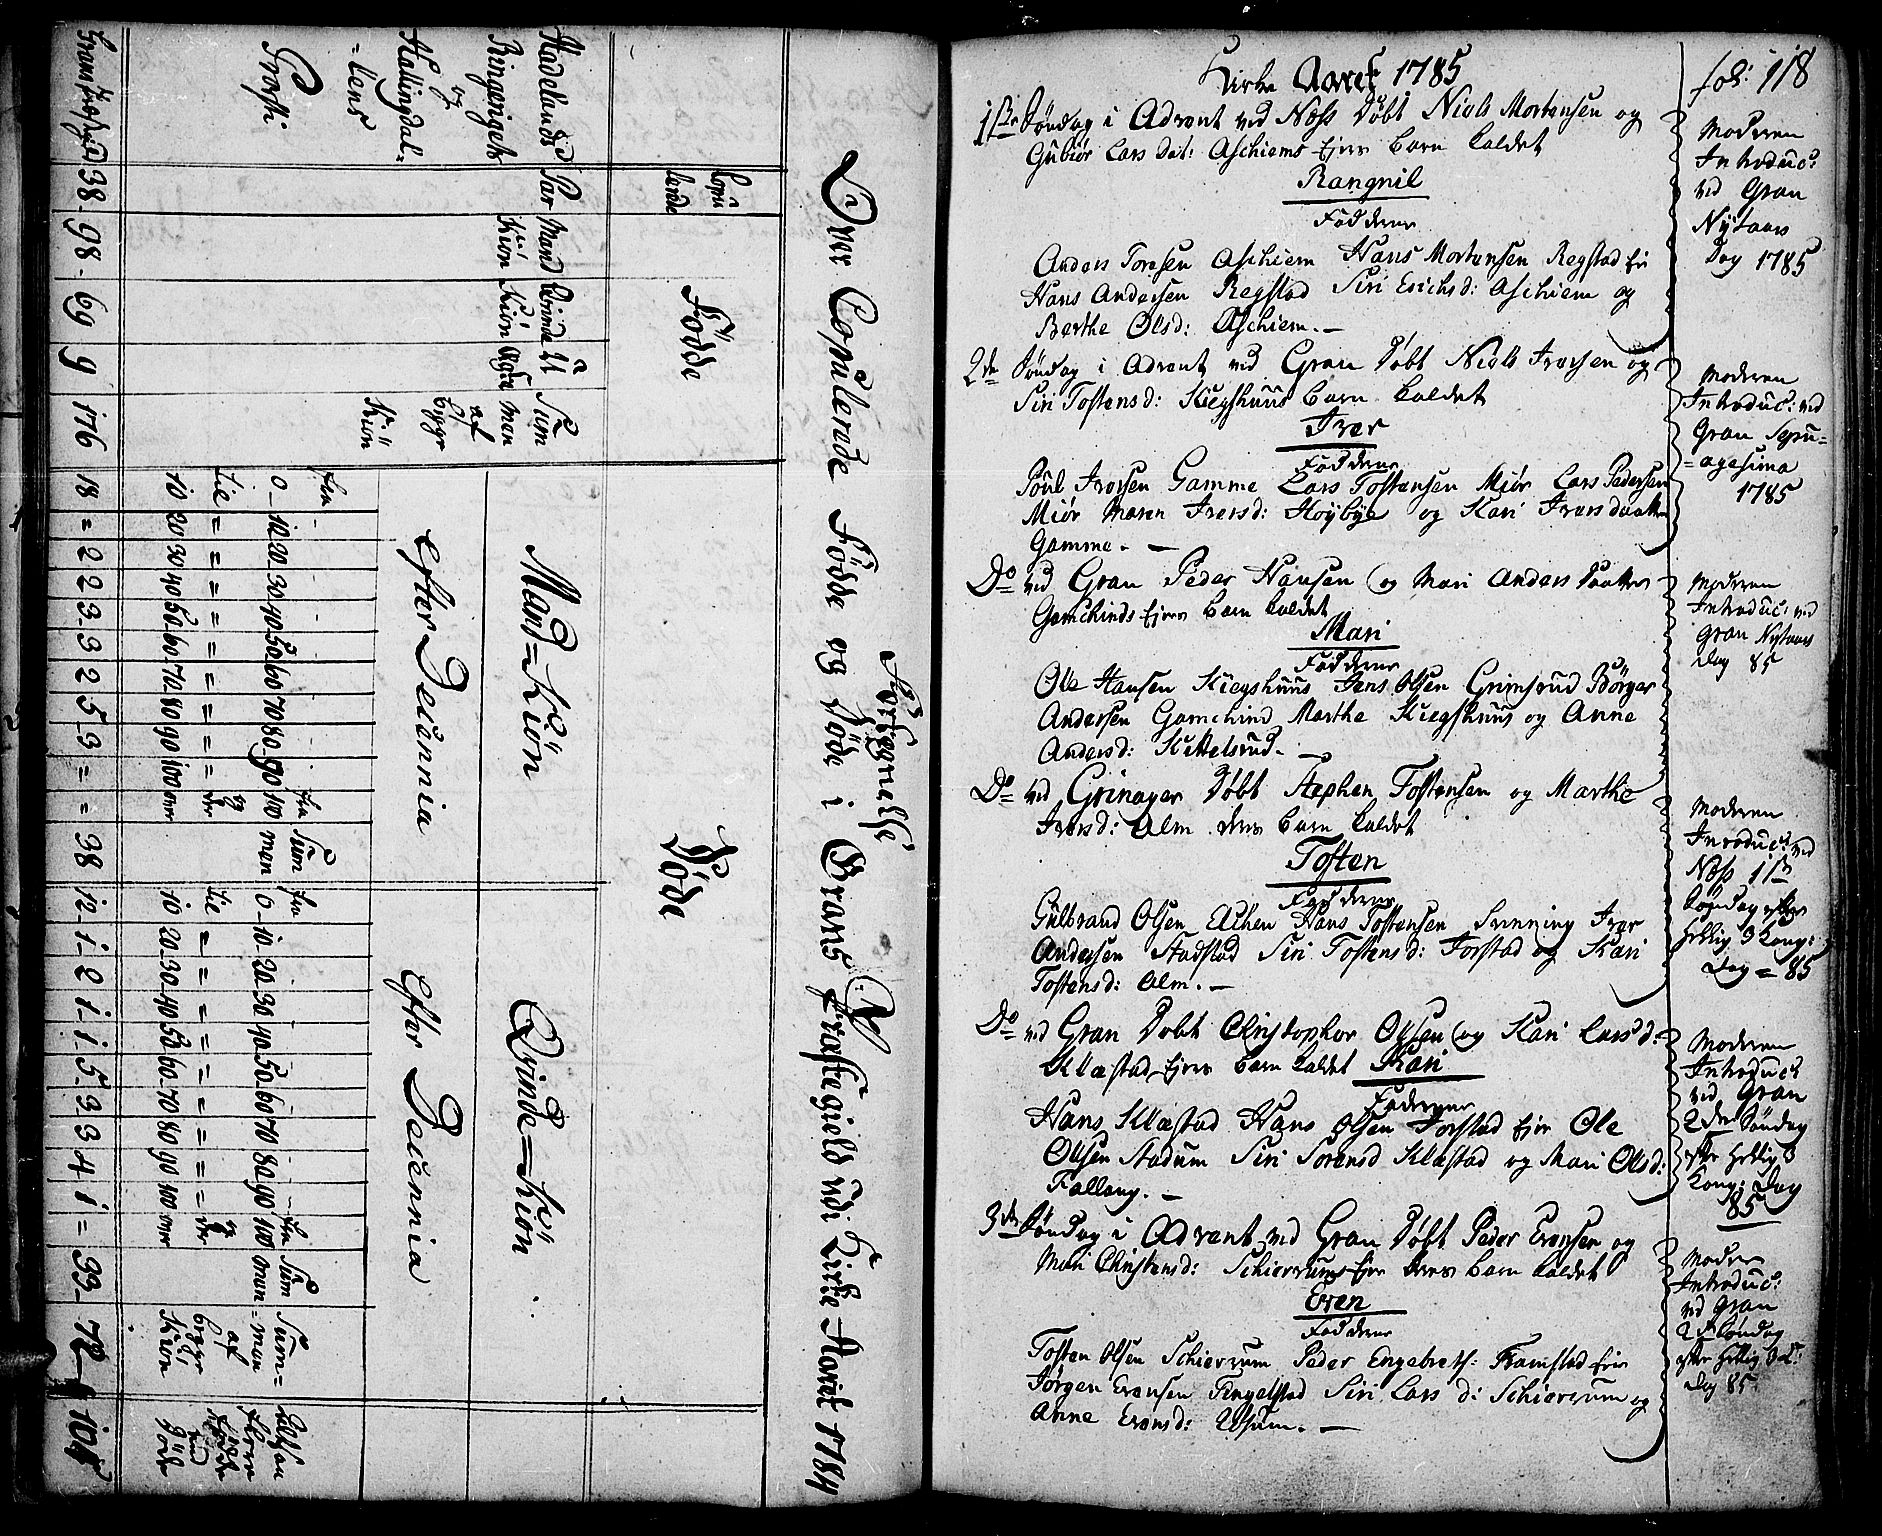 Fortegnelse
Over Copulerede Fødde og Døde i Grans Præstegield udi Kirke-Aaret 1784
Copulerede
Fødde
Døde
Hadelands
Ringeriget
og
Hallingdal=
=lens
Provsti
Par
Mand Kiön
Qvinde Kiön
Uægte
Sum
man
af
begge
Kiön
Mand=Kiön
Efter Decennia
Qvinde=Kiön
Efter Decennia
fra 0 - 10 20 30 40 50 60 70 80 90 100
til 10 20 30 40 50 60 70 80 90 100
Sum
man
fra 0 - 10 - 20 30 40 50 60 70 80 90 100
til 10 20 30 40 50 60 70 80 90 100
Sum
man
Sum=
=man
af
begge
Kiön
Grans Præstegield 38 - 98 - 69 9 176 18 = 2 2 3 3 2 5 3 = = 38 12 1 2 1 1 5 3 3 4 1 = 33 - 72 104
Kirke Aaret 1785
fol: 118
1ste Søndag i Advent ved Næss Døbt Niels Mortensen og
Gubiør Lars Dat: Aschiems Ejers Barn kaldet
Rangnil
Faddere
Anders Toresen Aschiem Hans Mortensen Regstad Ejer
Hans Andersen Regstad Siri Erichsd: Aschiem og
Berthe Olsd: Aschiem. —
Moderen
Introduc:
ved Gran
Nytaars
Dag 1785
2den Søndag i Advent ved Gran Døbt Niels Iversen og
Siri Tostensd: Kiegshuus Barn kaldet
Iver
Faddere
Poul Iversen Gamme Lars Tostensen Miør Lars Pedersen
Miør Maren Iversd: Høybye og Kari Iversdaatter
Gamme. —
Moderen
Introduc: ved
Gran Septu=
=agesima
1785
Do ved Gran Peder Hansen og Mari Anders Daatter
Gamchinds Ejers Barn kaldet
Mari
Faddere
Ole Hansen Kiegshuus Jens Olsen Grimsrud Börger
Andersen Gamchind Marthe Kiegshuus og Anne
Andersd: Kittelsrud. —
Moderen
Introduc: ved
Gran Nytaars
Dag 85
Do ved Grinager Døbt Stephen Tostensen og Marthe
Iversd: Alm deres Barn kaldet
Tosten
Faddere
Gulbrand Olsen Hans Tostensen Iver
Andersen Stadstad Siri Tostensd: Torstad og Kari
Tostensd: Alm. —
Moderen
Introduc: ved
Næss 1ste
Søndag efter
Hellig 3 Kong:
Dag = 85
Do ved Gran Døbt Christophor Olsen og Kari Larsd:
Klæstad Ejers Barn kaldet Kari
Faddere
Hans Klæstad Hans Olsen Torstad Ejer Ole
Olsen Stadum Siri Sorensd Klæstad og Mari Olsd:
Fallang. —
Moderen
Introduc:
ved Gran
2den Søndag
efter Hellig 3
Kong: Dag
85
3die Søndag i Advent ved Gran Døbt Peder Evensen og
Mari Christensd: Schierrums Ejer deres Barn kaldet
Even
Faddere
Tosten Olsen Schierrum Peder Engebrets: Framstad Ejer
Jörgen Evensen Tingelstad Siri Lars d: Schierrum og
Anne Evensd: Ulsum. —
Moder
Introduc:
ved Gran
2den Søndag
efter Hellig 3 K:
Dag 85